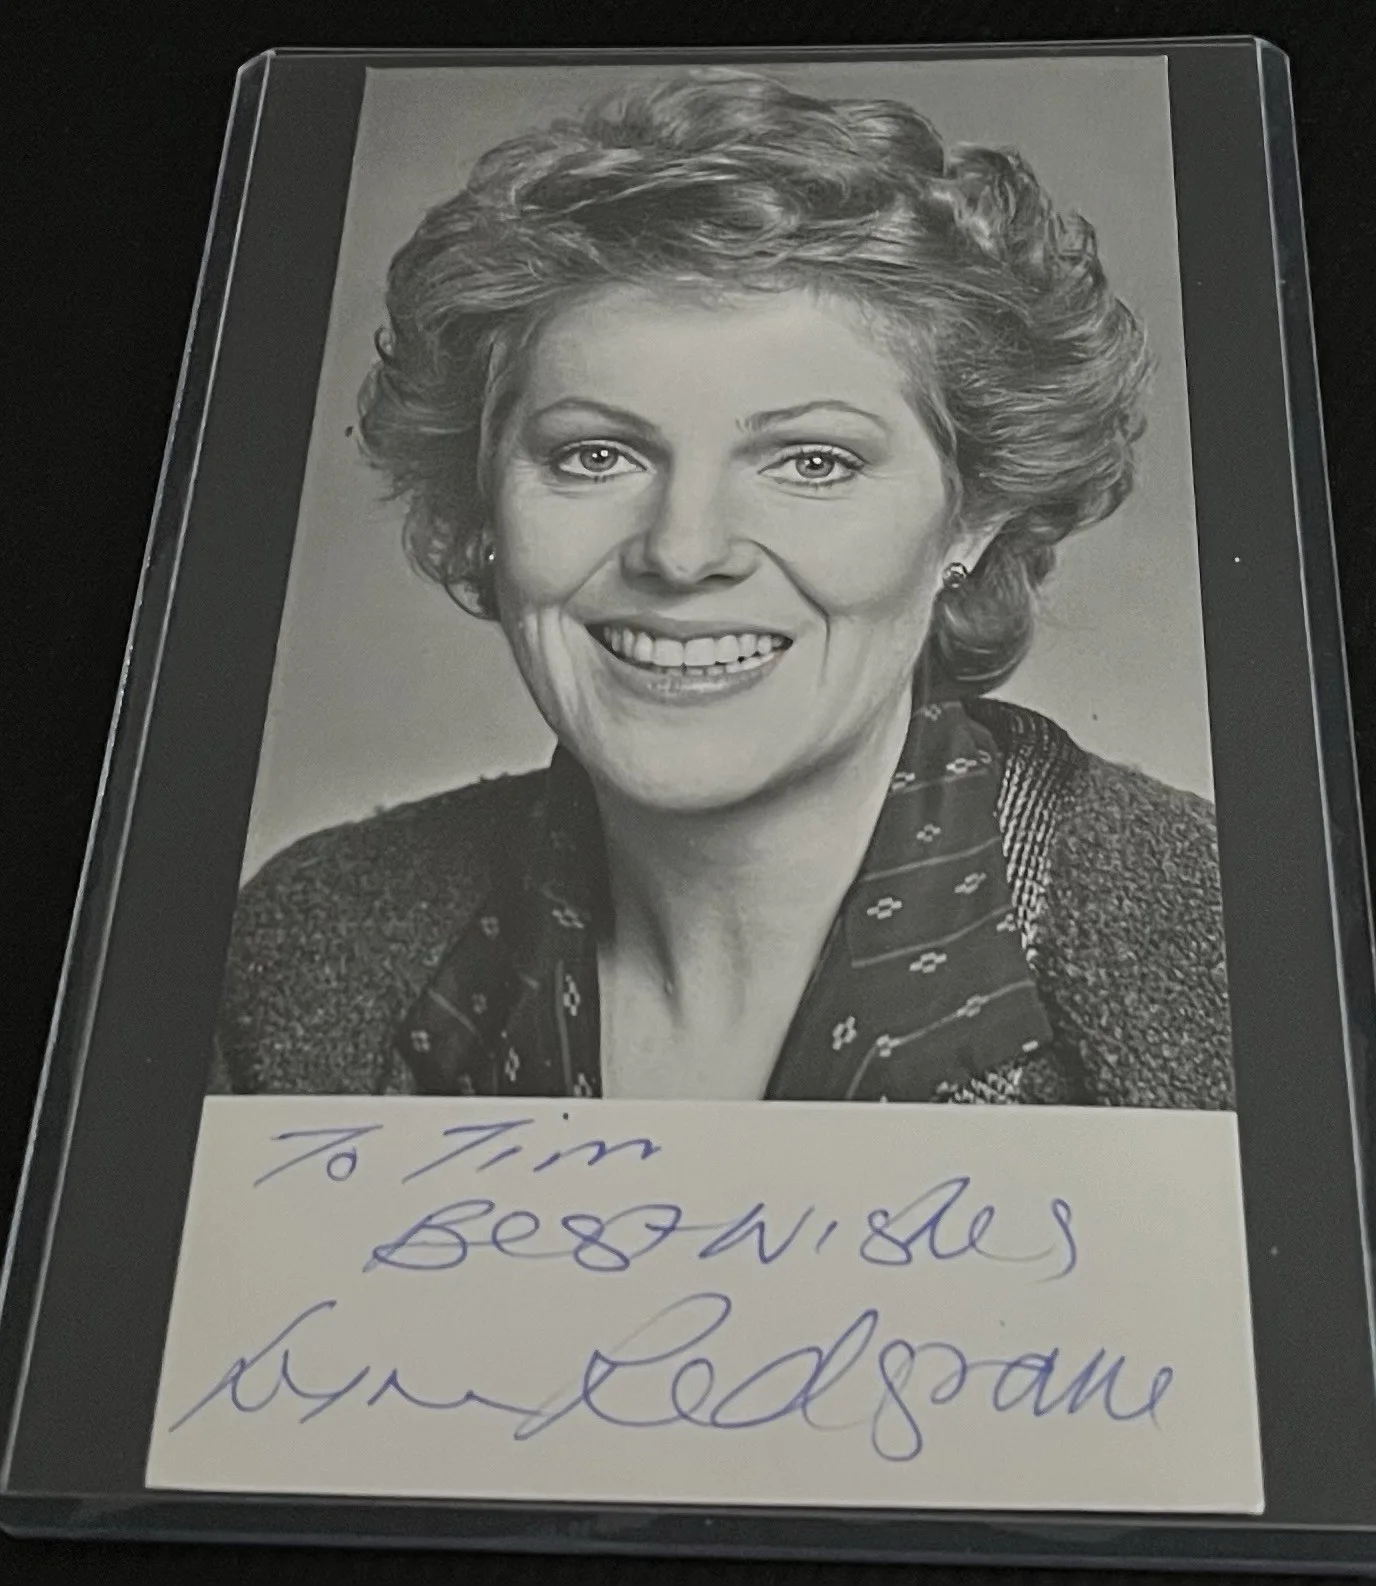 To Tim
Best Wishes
Lynn Redgrave